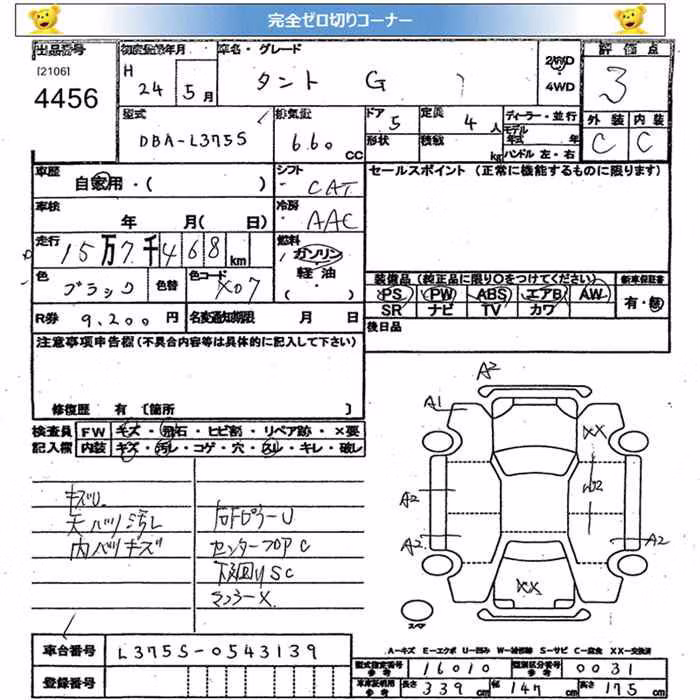 完全ゼロ切りコーナー
出品番号
[2106]
4456
初度登録年月
H 24 年 5 月
車名・グレード
タント G
2WD
・
4WD
評価点
3
型式
DBA-L375S
排気量
660 CC
ドア 5
形状
定員 4 人
積載 kg
ディーラー・並行
モデル
年式 年
ハンドル 左・右
外装 内装
C C
車歴
自家用・( )
シフト
CAT
セールスポイント (正常に機能するものに限ります)
車検
年 月( 日)
冷房
AAC
走行
15万7千468km
燃料
ガソリン
軽油
・( )
色
ブラック
色替
色コード
X07
装備品(純正品に限り○をつけてください)
PS PW ABS エアB AW
SR ナビ TV カワ
新車保証書
有・無
R券 9,200 円
名変通知期限 月 日
後日品
注意事項申告欄(不具合内容等は具体的に記入して下さい)
修復歴 有〔箇所 〕
検査員
記入欄
FW キズ・飛石・ヒビ割・リペア跡・×要
内装 キズ・汚レ・コゲ・穴・スレ・キレ・破レ
キズU
天バリ汚レ
内バリキズ
右Fピラー U
センターフロア C
下回りSC
ミラー X
A2
A1
XX
A2
W2
A2
A2
XX
スペア
車台番号 L375S-0543139
登録番号
A-キズ E-エクボ U-凹み W-補修跡 S-サビ C-腐食 XX-交換済
型式指定番号
参考
16010
類別区分番号
参考
0031
車庫証明用
参考
長さ 339 cm 幅 147 cm 高さ 175 cm